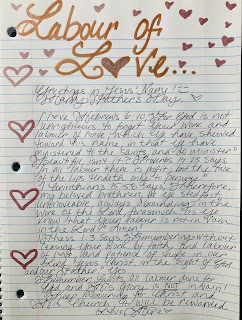 Labour of
Love...
Greetings in Jesus' Name! :)
Happy Father's Day.
I love Hebrews 6:10, "For God is not
unrighteous to forget your work and
labour of love, which ye have shewed
toward His name, in that ye have
ministered to the saints, and do minister."
Beautiful, isn't it? Proverbs 14:23 says,
"In all labour there is profit, but the talk
of the lips tendeth only to penury."
I Corinthians 15:58 says, "Therefore,
my beloved brethren, be ye stedfast,
unmoveable, always abounding in the
work of the Lord, forasmuch as ye
know that your labour is not in vain
in the Lord." Amen!
I Thess. 1:3 says, "Remembering without
ceasing your work of faith, and labour
of love, and patience of hope in our
Lord Jesus Christ, in the sight of God
and our Father." Yes
Remember, saints, all labour done to
God and for His glory is NOT in vain!
Keep labouring for Christ and
His Church. You will be rewarded.